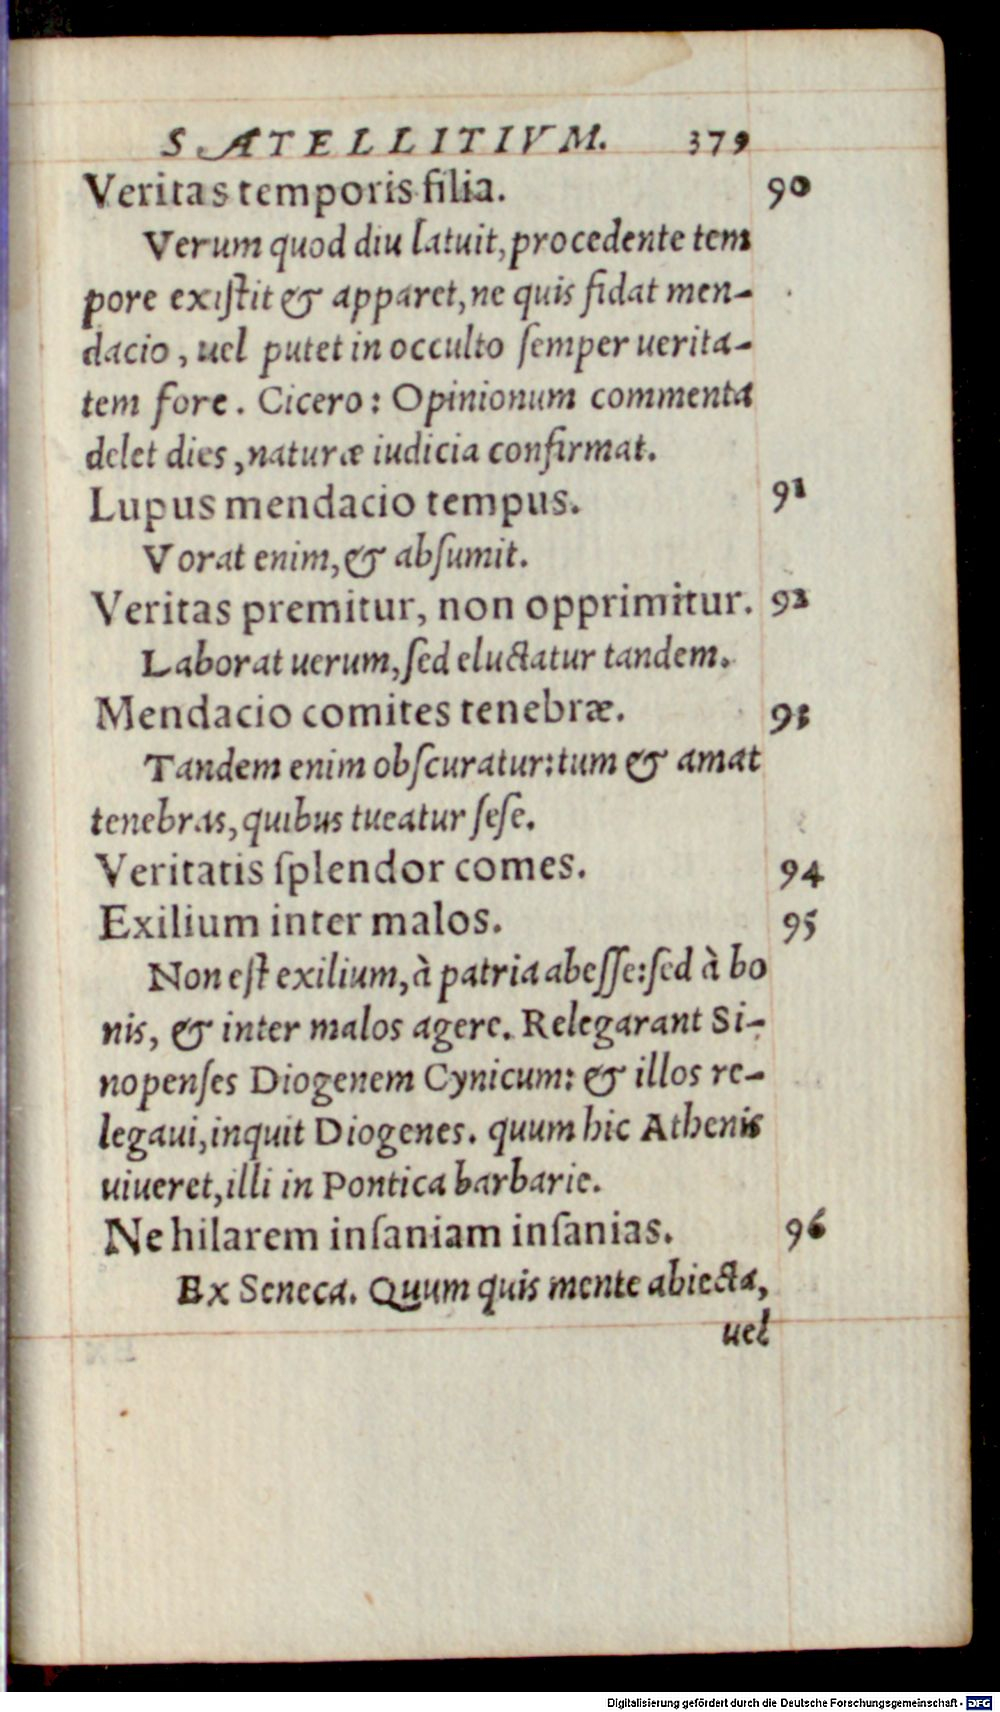 SATELLITIVM. 379
Veritas temporis filia. 90
Verum quod diu latuit, procedente tem
pore exiſtit & apparet, ne quis fidat men-
dacio, uel putet in occulto ſemper uerita-
tem fore. Cicero: Opinionum commenta
delet dies, naturæ iudicia confirmat.
Lupus mendacio tempus. 91
Vorat enim, & abſumit.
Veritas premitur, non opprimitur. 92
Laborat uerum, ſed eluctatur tandem.
Mendacio comites tenebræ. 93
Tandem enim obſcuratur: tum & amat
tenebras, quibus tueatur ſeſe.
Veritatis ſplendor comes. 94
Exilium inter malos. 95
Non eſt exilium, à patria abeſſe: ſed à bo
nis, & inter malos agere. Relegarant Si-
nopenſes Diogenem Cynicum: & illos re-
legaui, inquit Diogenes. quum hic Athenis
uiueret, illi in Pontica barbarie.
Ne hilarem inſaniam inſanias. 96
Ex Seneca. Quum quis mente abiecta,
uel
Digitalisierung gefördert durch die Deutsche Forschungsgemeinschaft - DFG